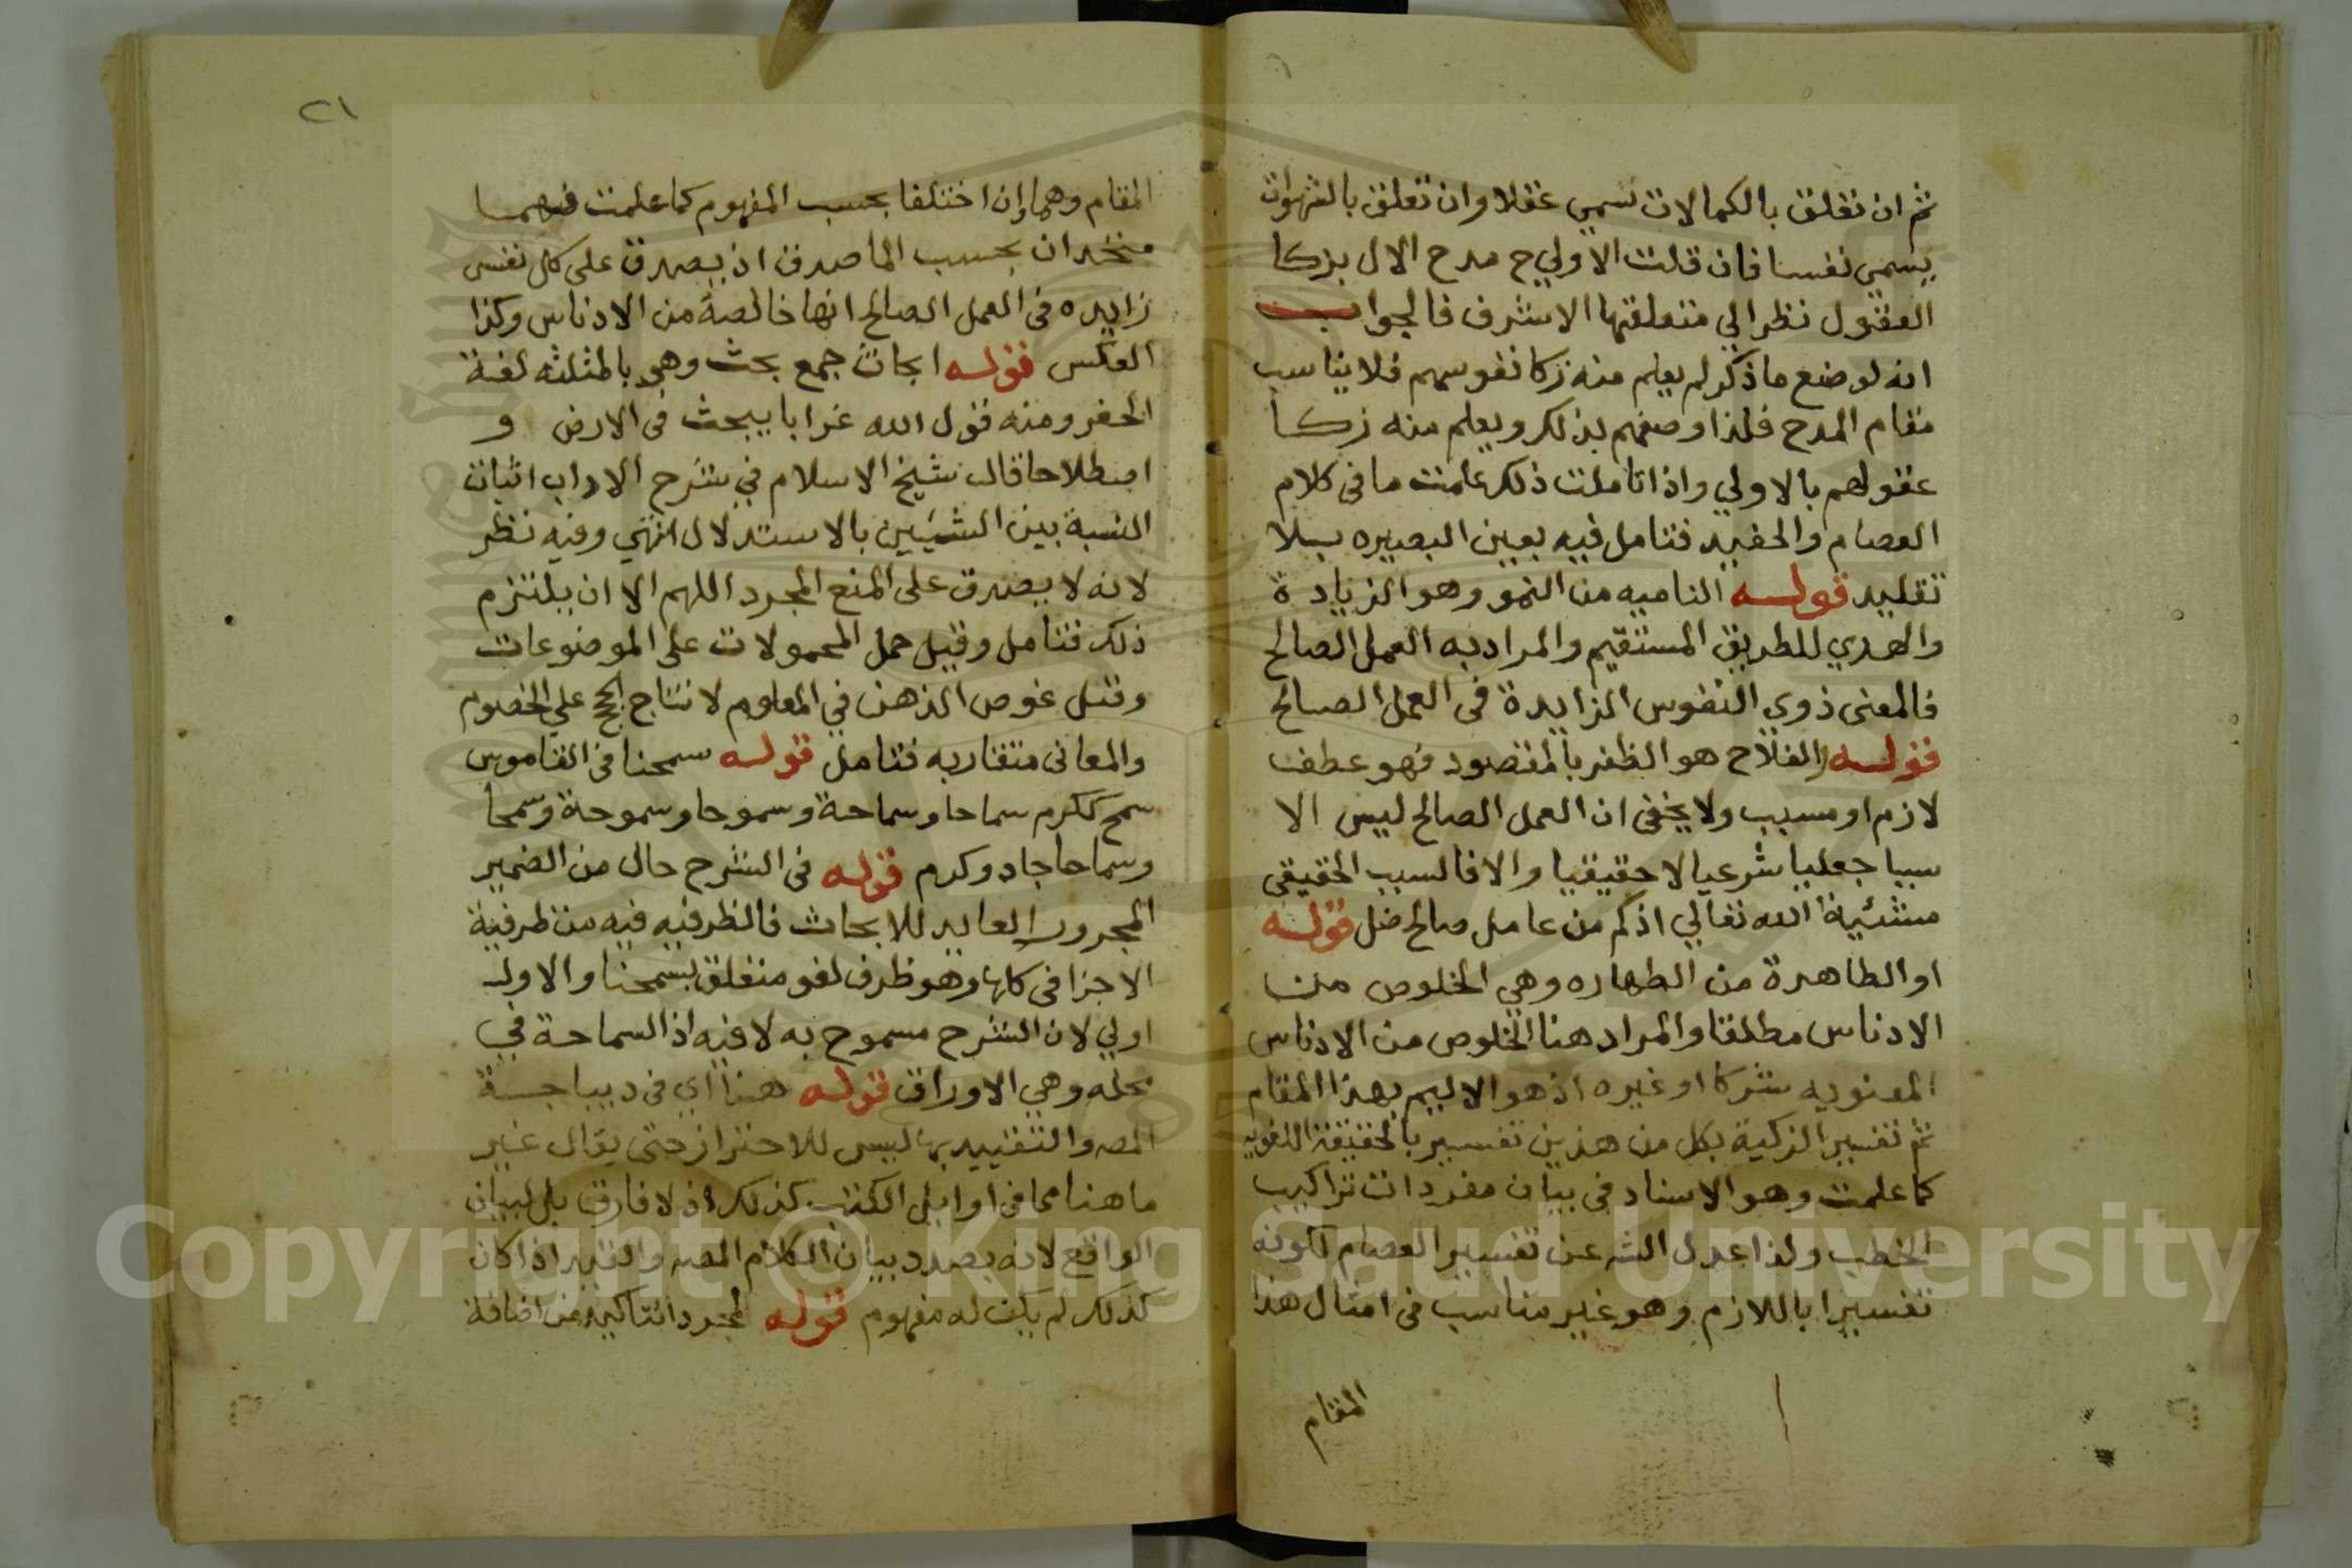 ثم ان تعلق بالكمالات تسمي عقلا وان تعلق بالشهوات
يسمي نفسا فان قلت الاولي ح مدح الال بزكا
العقول نظرا لي متعلقها الاشرف فالجواب
انه لو صنع ما ذكر لم يعلم منه زكا نفوسهم فلا يناسب
مقام المدح فلذا وصفهم بذلك ويعلم منه زكا
عقولهم بالاولي واذا تاملت ذلك علمت ما في كلام
العصام والحفيد فتامل فيه بعين البصيره بلا
تقليد قوله الناميه من النمو وهو الزيادة
والهدي للطريق المستقيم والمراد به العمل الصالح
فالمعنى ذوي النفوس الزايدة في العمل الصالح
قوله والفلاح هو الظفر بالمقصود فهو عطف
لازم او مسبب ولا يخفى ان العمل الصالح ليس الا
سببا جعليا شرعيا لا حقيقيا والا فالسبب الحقيقي
مشئية الله تعالي اذ كم من عامل صالح ضل قوله
او الطاهرة من الطهاره وهي الخلوص من
الادناس مطلقا والمراد هنا الخلوص من الادناس
المعنويه شركا او غيره اذ هو الاليم بهذا المقام
ثم تفسير الزكية بكل من هذين تفسير بالحقيقة اللغويه
كما علمت وهو الاسناد في بيان مفردات تراكيب
الخطب ولذا عدل الشه عن تفسير العصام لكونه
تفسيرا باللازم وهو غير مناسب في امثال هذا
المقام
٢١
المقام وهما وان اختلفا بحسب المفهوم كما علمت فهما
متحدان بحسب الماصدق اذ يصدق على كل نفس
زايده في العمل الصالح انها خالصة من الادناس وكذا
العكس قوله ابحاث جمع بحث وهي بالمثلثه لغة
الحفر ومنه قول الله غرابا يبحث في الارض و
اصطلاحا قال شيخ الاسلام في شرح الاداب اثبات
النسبة بين الشيئين بالاستدلال انتهي وفيه نظر
لانه لا يصدق على المنع المجرد اللهم الا ان يلتزم
ذلك فتامل وقيل حمل المحمولات على الموضوعات
وقيل غوص الذهن في المعلوم لانتاج الحجج علي الخصوم
والمعاني متقاربه فتامل قوله سمحنا في القاموس
سمح ككرم سماحا وسماحة وسموحا وسموحة وسمحا
وسماحا جاد وكرم قوله في الشرح حال من الضمير
المجرور العايد للابحاث فالظرفيه فيه من ظرفية
الاجزا في كلها وهو ظرف لغو متعلق بسمحنا والاول
اولي لان الشرح مسموح به لا فيه اذ السماحة في
محله وهي الاوراق قوله هنا اي في ديباجة
المصه والتقييد بها ليس للاحتراز حتى يقال غير
ما هنا مما في اوايل الكتب كذلك اذ لا فارق بل لبيان
الواقع لانه بصدد بيان الكلام المصه والقيد اذا كان
كذلك لم يكن له مفهوم قوله لمجرد التاكيد من اضافة
Copyright © King Saud University